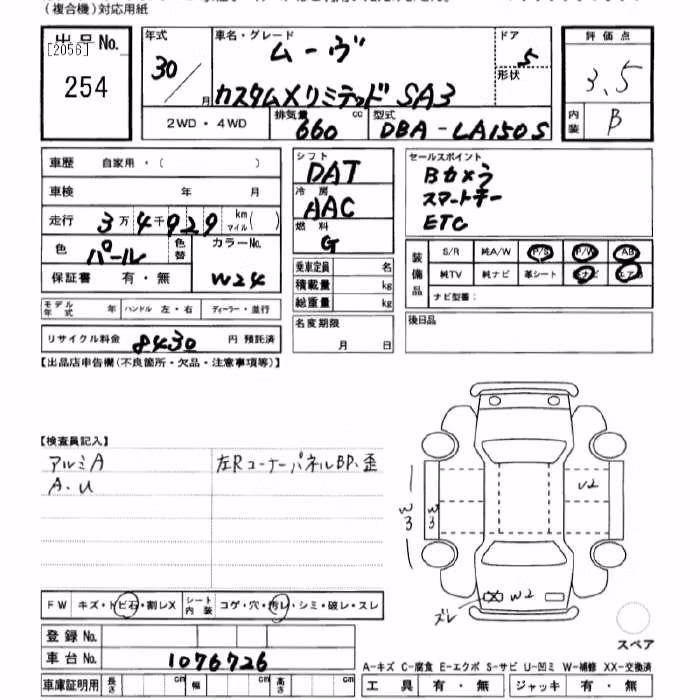 (複合機)対応用紙
出品No. 年式 車名・グレード ムーヴ ドア 5 評価点
[2056] 254 30/月 カスタムXリミテッド SA3 形状 3.5
2WD・4WD 排気量 660 cc 型式 DBA-LA150S 内装 B
車歴 自家用・( ) シフト DAT セールスポイント
車検 年 月 冷房 AAC Bカメラ
走行 3万4千929 km マイル( ) 燃料 G スマートキー
色 パール 色替 カラーNo. W24 ETC
保証書 有・無 乗車定員 名
積載量 kg
総重量 kg
装備品 S/R 純A/W P/S P/W AB
純TV 純ナビ 革シート ナビ エアB
ナビ型番:
モデル年式 年 ハンドル 左・右 ディーラー・並行
名変期限 月 日 後日品
リサイクル料金 8430 円 預託済
【出品店申告欄(不良箇所・欠品・注意事項等)】
【検査員記入】
アルミA 左Rコーナーパネル BP、歪
A・U
U2
W3 W3
ズレ W2
FW キズ・トビ石・割レX シート内装 コゲ・穴・汚レ・シミ・破レ・スレ
登録No.
車台No. 1076726
スペア
A-キズ C-腐食 E-エクボ S-サビ U-凹ミ W-補修 XX-交換済
車庫証明用 長さ cm 幅 cm 高さ cm 工具 有・無 ジャッキ 有・無